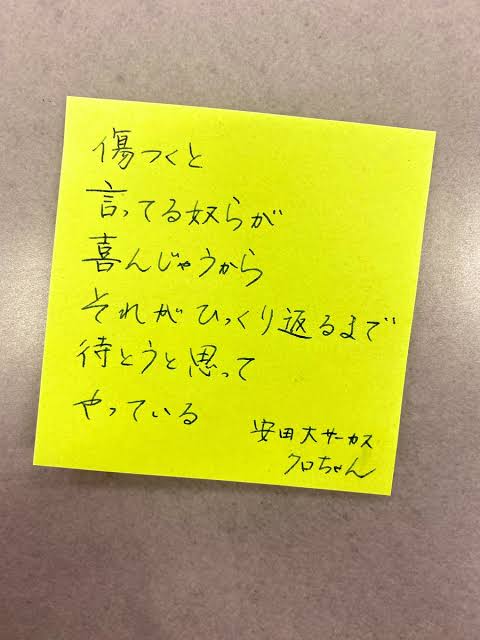 傷つくと
言ってる奴らが
喜んじゃうから
それがひっくり返るまで
待とうと思って
やっている
安田大サーカス
クロちゃん